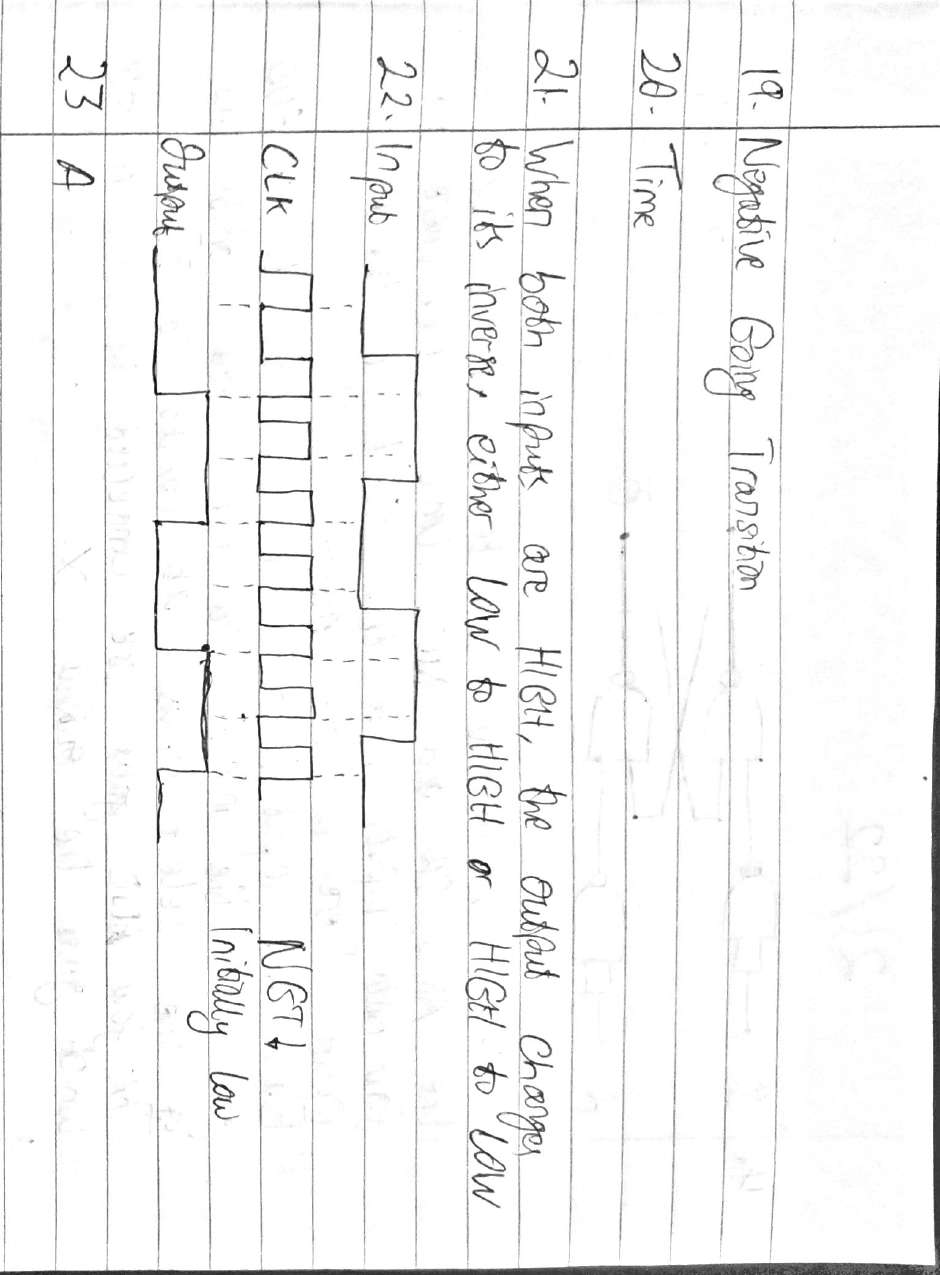 19. Negative Going Transition
20. Time
21. When both inputs are HIGH, the output Changes
to its inverse, either LOW to HIGH or HIGH to LOW
22. Input
CLK NGT↓
Initially Low
Output
23 A